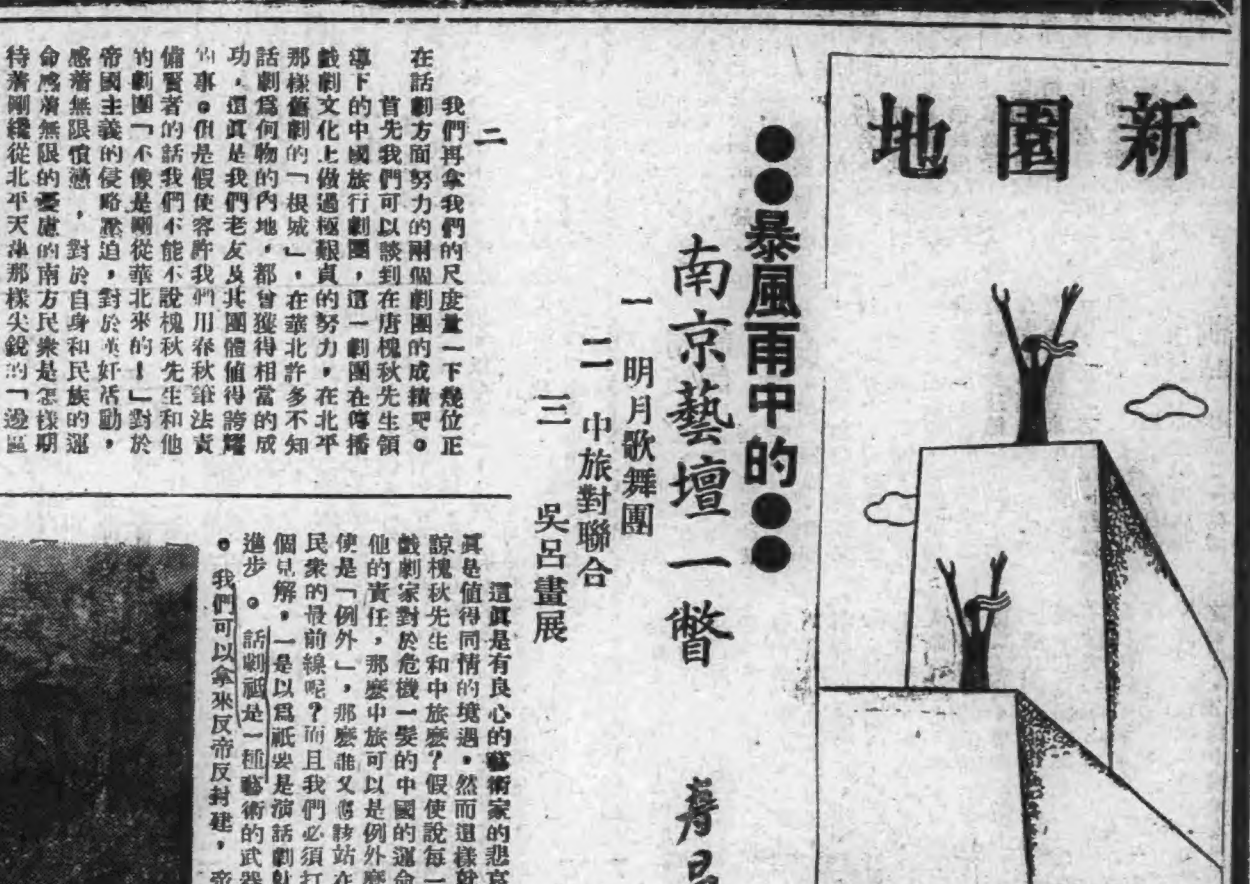 新園地
●●暴風雨中的●●
南京藝壇一瞥
一 明月歌舞團
二 中旅對聯合
三 吳呂畫展
二
我們再拿我們的尺度量一下幾位正
在話劇方面努力的兩個劇團的成績吧。
首先我們可以談到在唐槐秋先生領
導下的中國旅行劇團,這一劇團在傳播
戲劇文化上做過極艱貞的努力,在北平
那樣舊劇的「根城」,在華北許多不知
話劇爲何物的內地,都曾獲得相當的成
功,這眞是我們老友及其團體値得誇耀
的事。但是假使容許我們用春秋筆法責
備賢者的話我們不能不說槐秋先生和他
的劇團「不像是剛從華北來的!」對於
帝國主義的侵略壓迫,對於漢奸活動,
感着無限憤懣,對於自身和民族的運
命感着無限的憂慮的南方民衆是怎樣期
待着剛纔從北平天津那樣尖銳的「邊區
這眞是有良心的藝術家的悲哀
眞是値得同情的境遇。然而這樣就
諒槐秋先生和中旅麽?假使說每一
戲劇家對於危機一髮的中國的運命
他的責任,那麽中旅可以是例外麽
使是「例外」,那麽誰又應該站在
民衆的最前線呢?而且我們必須打
個見解,一是以爲祇要是演話劇就
進步。話劇祇是一種藝術的武器
。我們可以拿來反帝反封建,帝